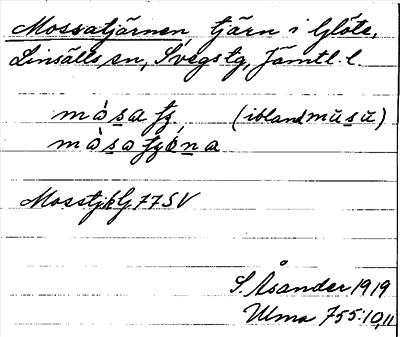 Mossatjärnen, tjärn i Glöte,
Linsälls sn, Svegs tg, Jämtl. l.
mòsa (ibland mùsù)
mòsa
77 SV
S. Åsander 1919
Ulma 755:10,11